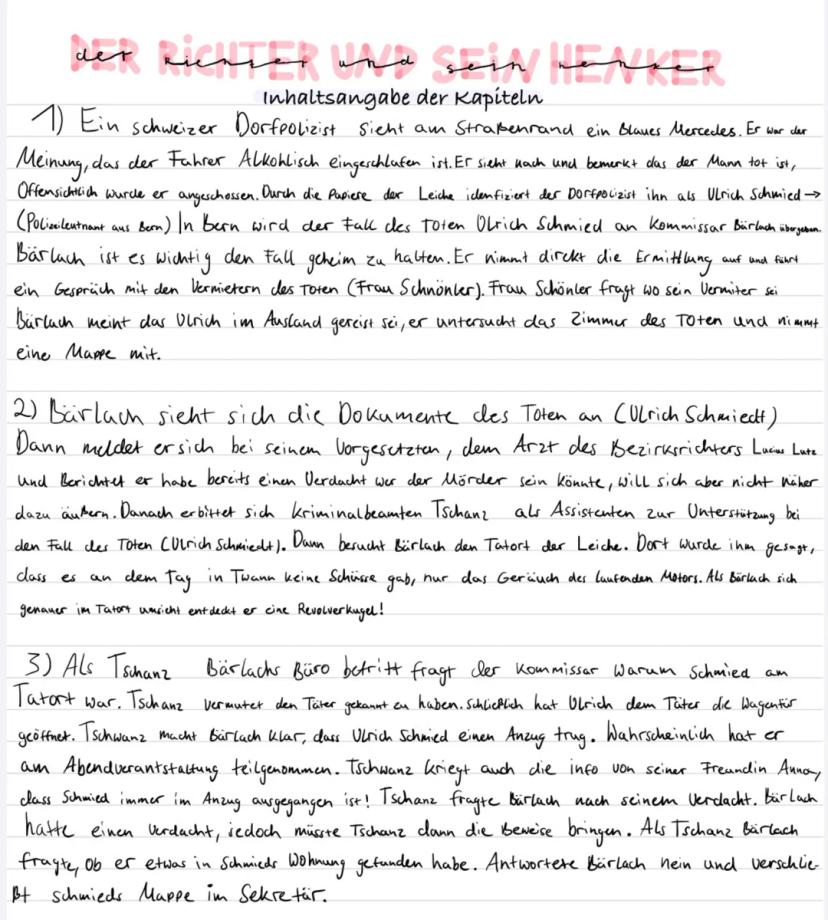 DER RiCHTER UND SEiN HENKER
der richter und sein henker
Inhaltsangabe der Kapiteln
1) Ein schweizer Dorfpolizist sieht am Straßenrand ein Blaues Mercedes. Er war der
Meinung, das der Fahrer Alkohlisch eingeschlafen ist. Er sieht nach und bemerkt das der Mann tot ist,
Offensichtlich wurde er angeschossen. Durch die Papiere der Leiche idenfiziert der Dorfpolizist ihn als Ulrich Schmied →
(Polizeileutnant aus Bern) In Bern wird der Fall des Toten Ulrich Schmied an Kommissar Bärlach übergeben.
Bärlach ist es wichtig den Fall geheim zu halten. Er nimmt direkt die Ermittlung auf und führt
ein Gespräch mit den Vermietern des Toten (Frau Schnönler). Frau Schönler fragt wo sein Vermiter sei
Bärlach meint das Ulrich im Ausland gereist sei, er untersucht das Zimmer des Toten und nimmt
eine Mappe mit.
2) Bärlach sieht sich die Dokumente des Toten an (Ulrich Schmiedt)
Dann meldet er sich bei seinem Vorgesetzten, dem Arzt des Bezirksrichters Lucius Lutz
und Berichtet er habe bereits einen Verdacht wer der Mörder sein könnte, will sich aber nicht näher
dazu äußern. Danach erbittet sich Kriminalbeamten Tschanz als Assistenten zur Unterstützung bei
den Fall des Toten (Ulrich Schmiedt). Dann besucht Bärlach den Tatort der Leiche. Dort wurde ihm gesagt,
dass es an dem Tag in Twann keine Schüsse gab, nur das Geräuch des laufenden Motors. Als Bärlach sich
genauer im Tatort umsicht entdeckt er eine Revolverkugel!
3) Als Tschanz Bärlachs Büro betritt fragt der Kommissar warum Schmied am
Tatort war. Tschanz vermutet den Täter gekannt zu haben. Schließlich hat Ulrich dem Täter die Wagentür
geöffnet. Tschwanz macht Bärlach klar, dass Ulrich Schmied einen Anzug trug. Wahrscheinlich hat er
am Abendverantstaltung teilgenommen. Tschwanz kriegt auch die info von seiner Freundin Anna,
dass Schmied immer im Anzug ausgegangen ist! Tschanz fragte Bärlach nach seinem Verdacht. Bärlach
hatte einen Verdacht, jedoch müsste Tschanz dann die Beweise bringen. Als Tschanz Bärlach
fragte, ob er etwas in Schmieds Wohnung gefunden habe. Antwortete Bärlach nein und verschlie-
ßt schmieds Mappe im Sekretär.